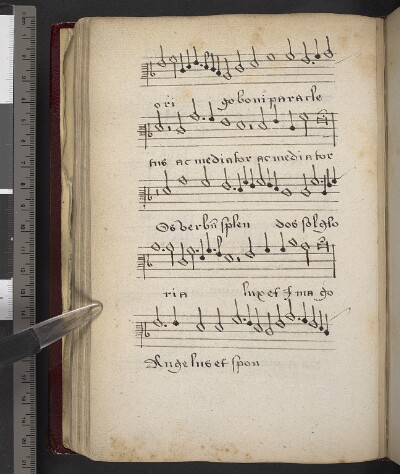 ori go boni paracle
tus ac mediator ac mediator
Os verbū splen dos sol glo
ria lux et Ima go
Angelus et spon